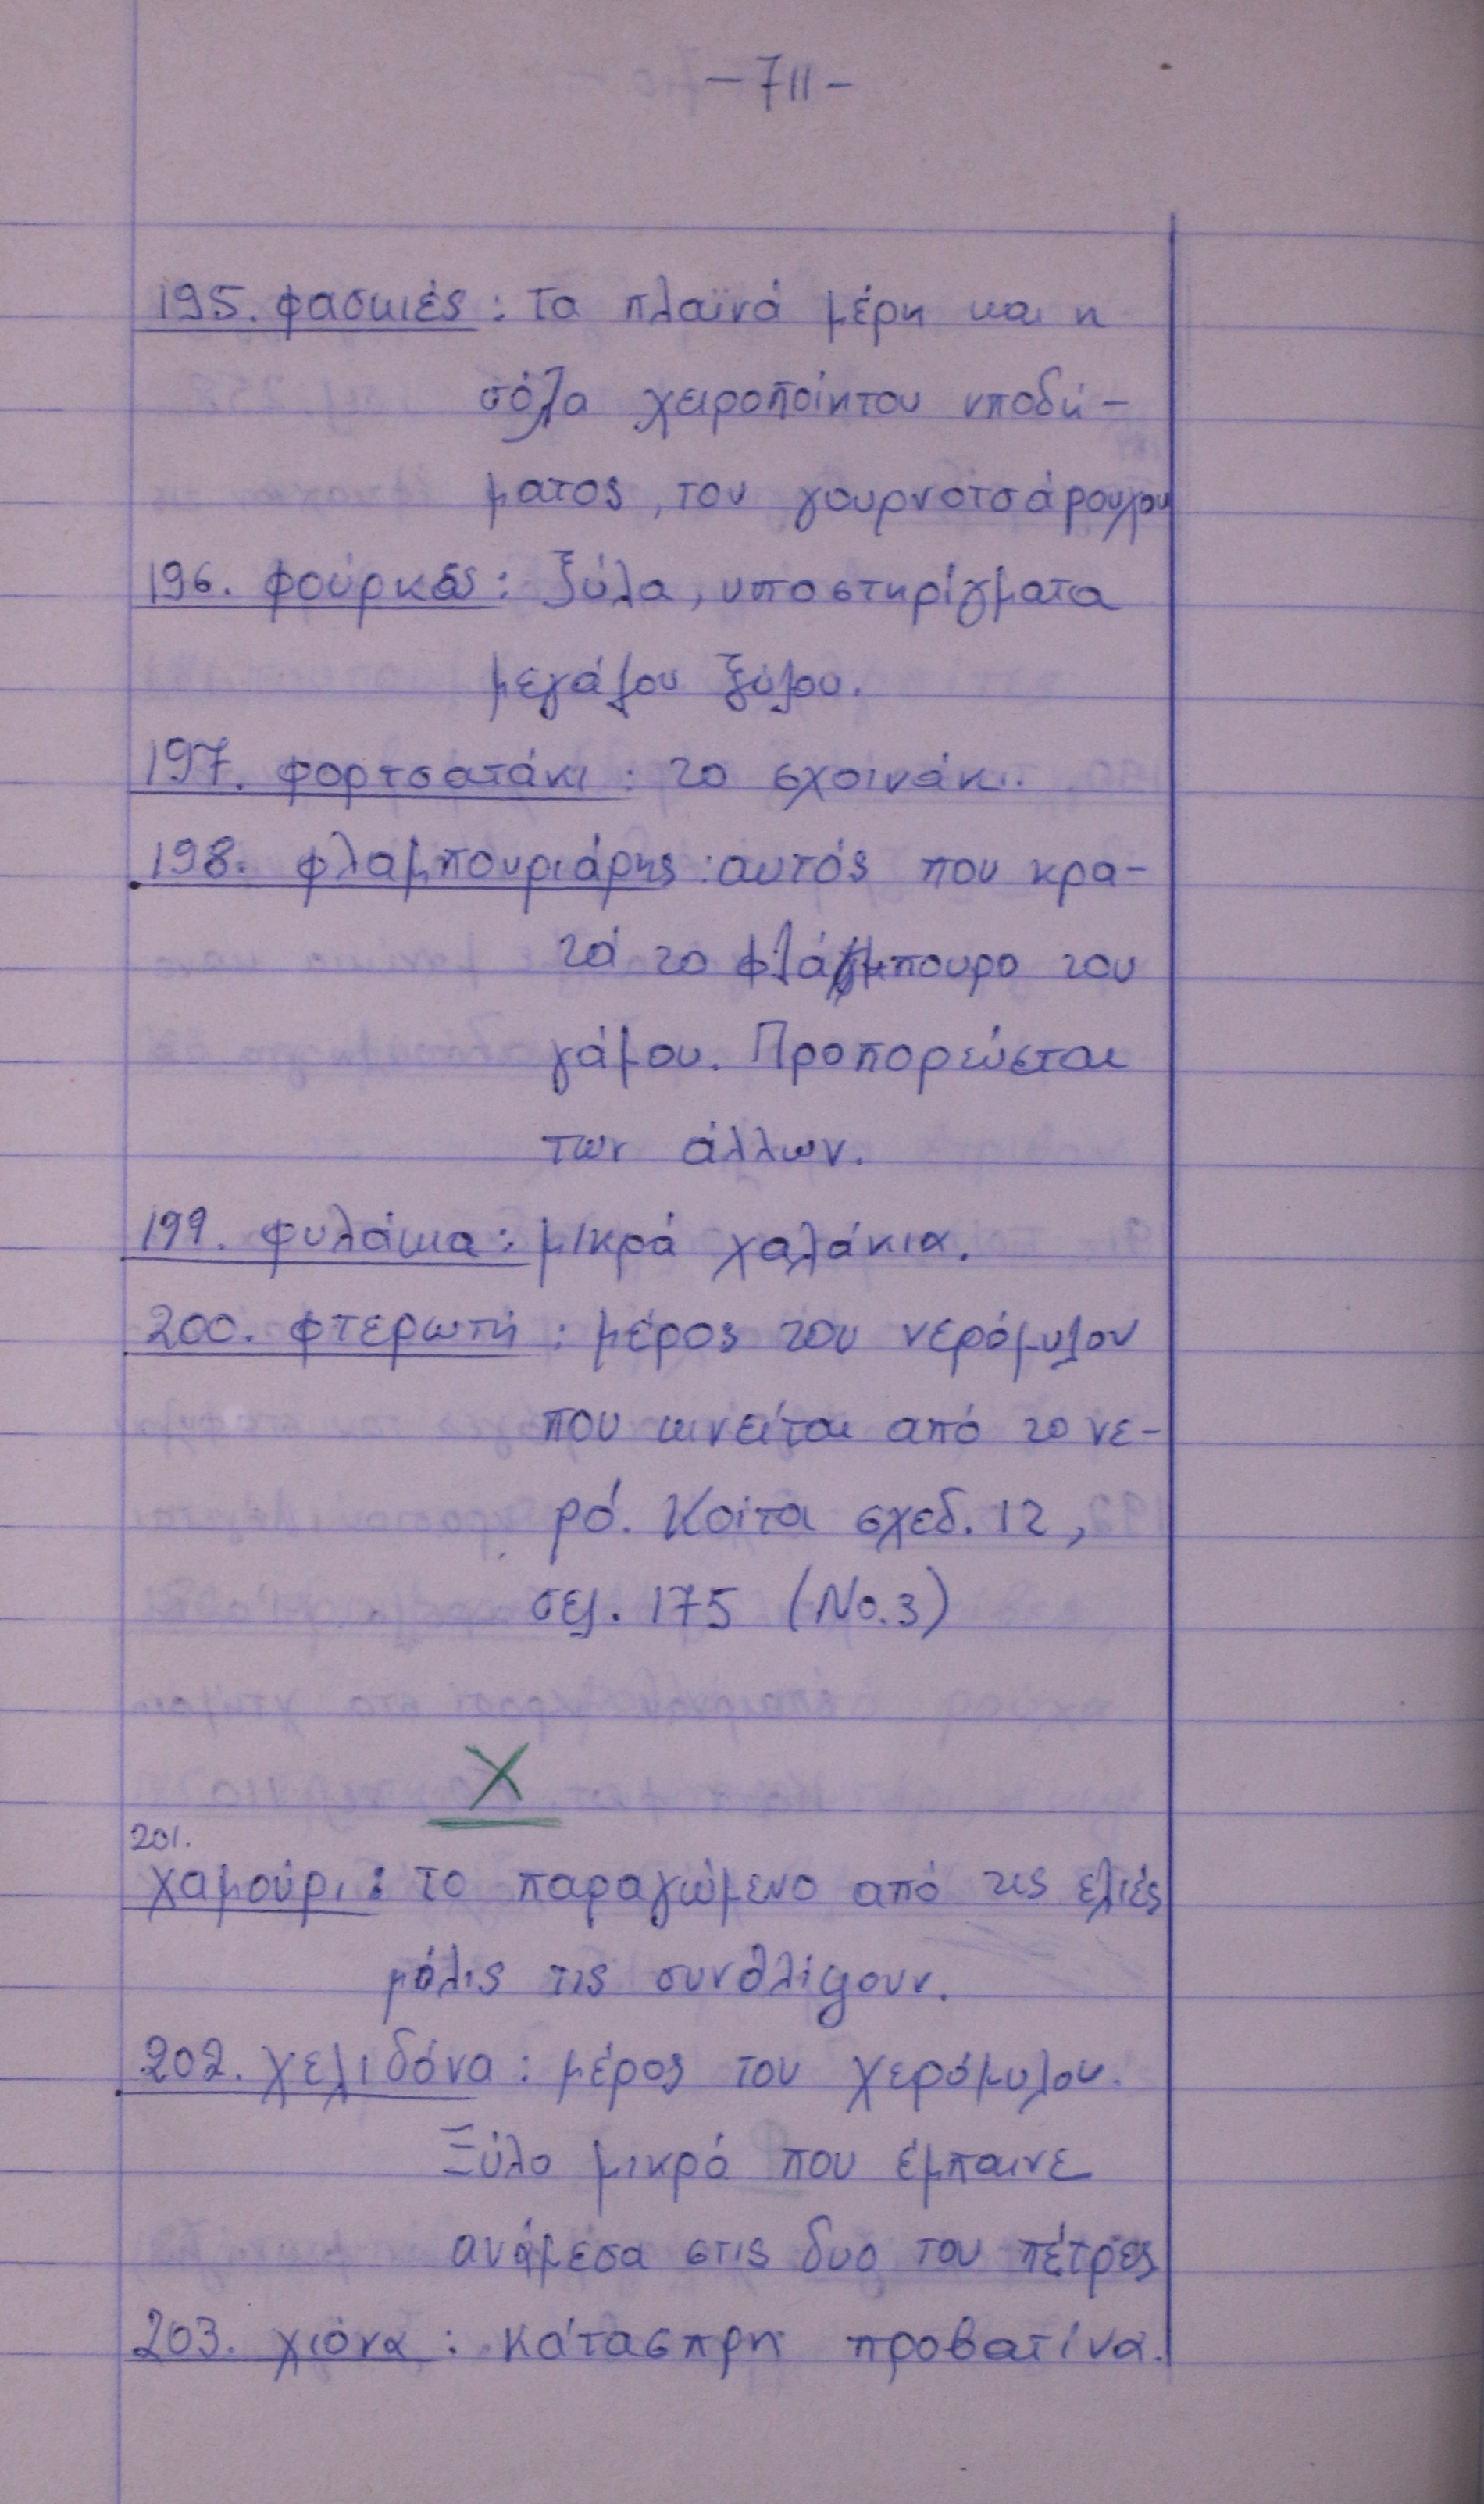 - 711 -
195. φασκιές : τα πλαϊνά μέρη και η
σόλα χειροποίητου υποδή-
ματος, του γουρνοτσάρουχου
196. φούρκες : ξύλα, υποστηρίγματα
μεγάλου ξύλου.
197. φορτσατάκι : το σχοινάκι.
198. φλαμπουριάρης : αυτός που κρα-
τά το φλάμπουρο του
γάμου. Προπορεύεται
των άλλων.
199. φυλάκια : μικρά χαλάκια.
200. φτερωτή : μέρος του νερόμυλου
που κινείται από το νε-
ρό. Κοίτα σχεδ. 12,
σελ. 175 (Νο. 3)
Χ
201.
χαμούρι : το παραγώμενο από τις ελιές
μόλις τις συνθλίψουν.
202. χελιδόνα : μέρος του χερόμυλου.
Ξύλο μικρό που έμπαινε
ανάμεσα στις δυο του πέτρες
203. χιόνα : κάτασπρη προβατίνα.